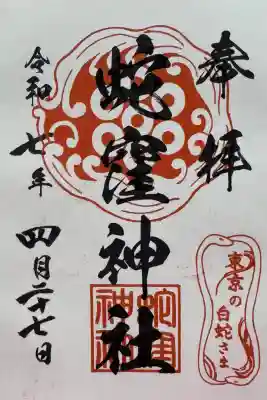 奉拝
蛇窪神社
令和七年
四月二十七日
東京の
白蛇さま
蛇窪
神社